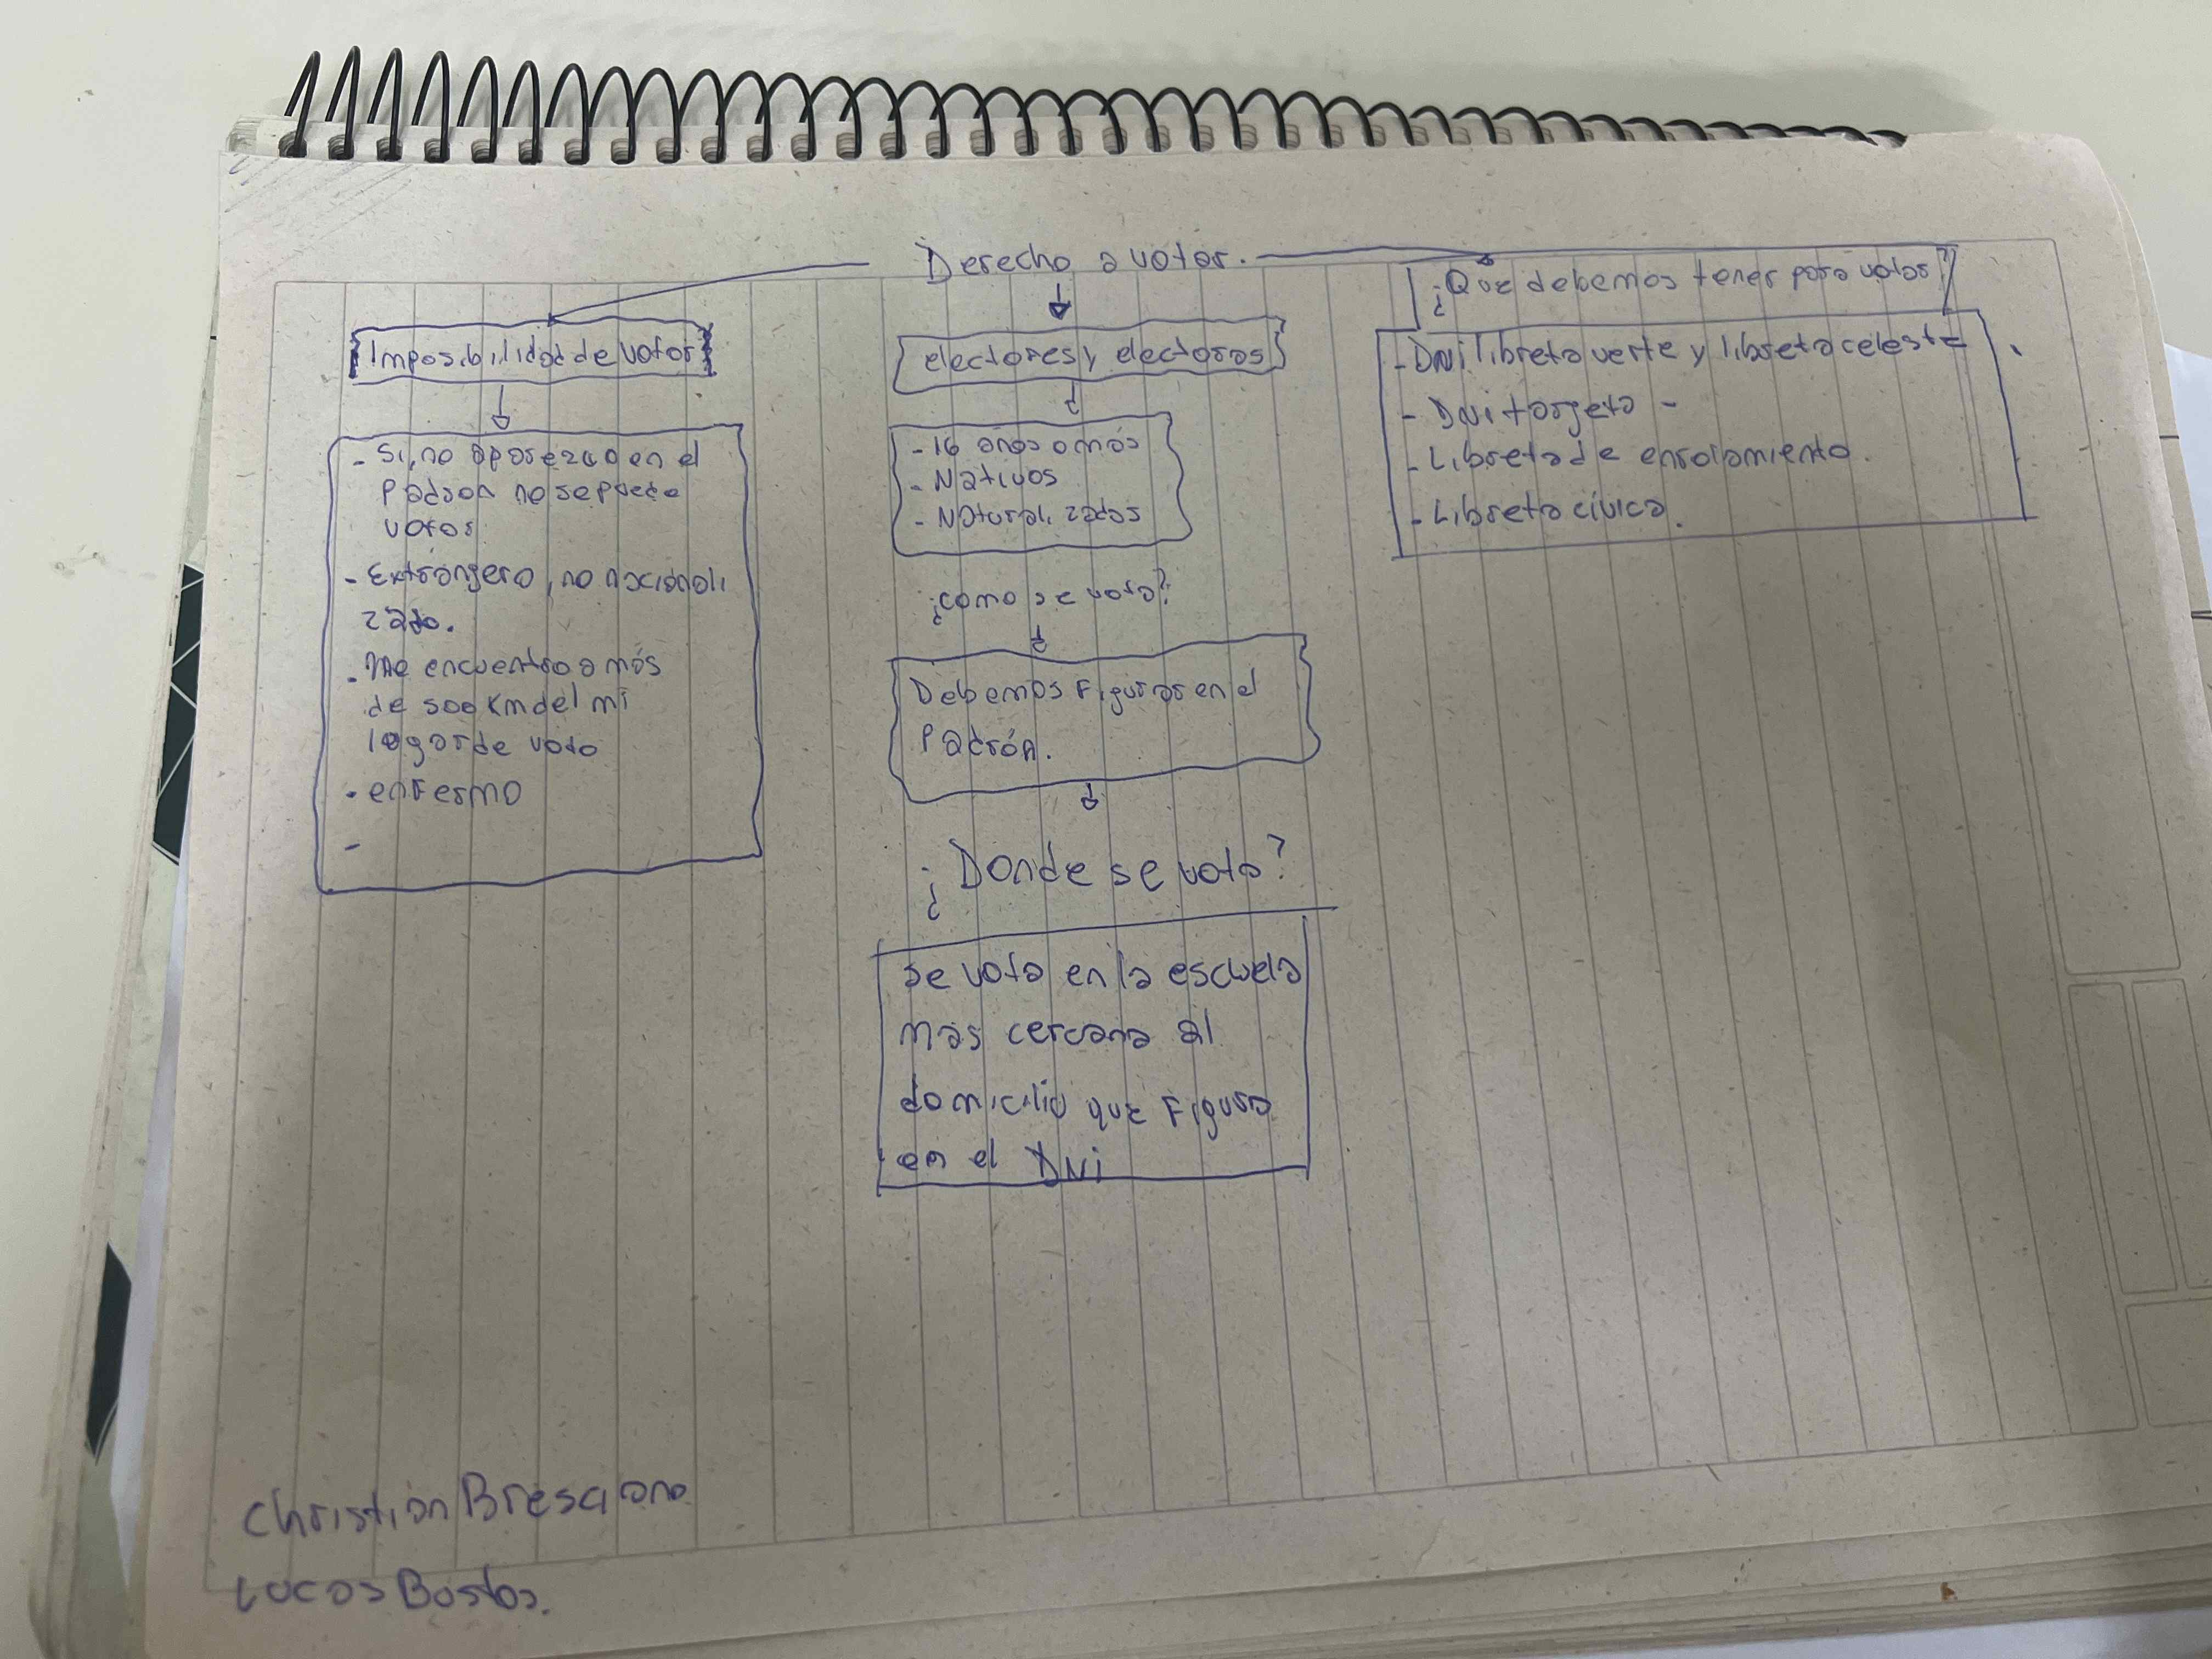 Derecho a votar.
Imposibilidad de votar
- Si, no aparezco en el
Padron no se puede
votar
- Extrangero, no nacionali
zado.
- me encuentro a más
de 500 Km del mi
lugar de voto
- enfermo
-
electores y electoras
- 16 años o más
- Nativos
- Naturalizados
¿como se vota?
Debemos Figurar en el
Padrón.
¿Donde se vota?
se vota en la escuela
mas cercana al
domicilio que Figura
en el DNi
¿Que debemos tener para votar?
- DNi libreta verte y libreta celeste
- DNi targeta -
- Libreta de enrolamiento.
- Libreta cívica.
Christian Bresciano
Lucas Bastos.